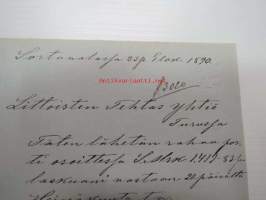 Sortavalassa 23p. Elok. 1890.
Littoisten Tehtas Yhtiö
Turussa
Täten lähetän rahaa pos-
ti osoitteessa S. mrk 1.419:83
laskuani vastaan 21 päivältä
Heinäkuuta